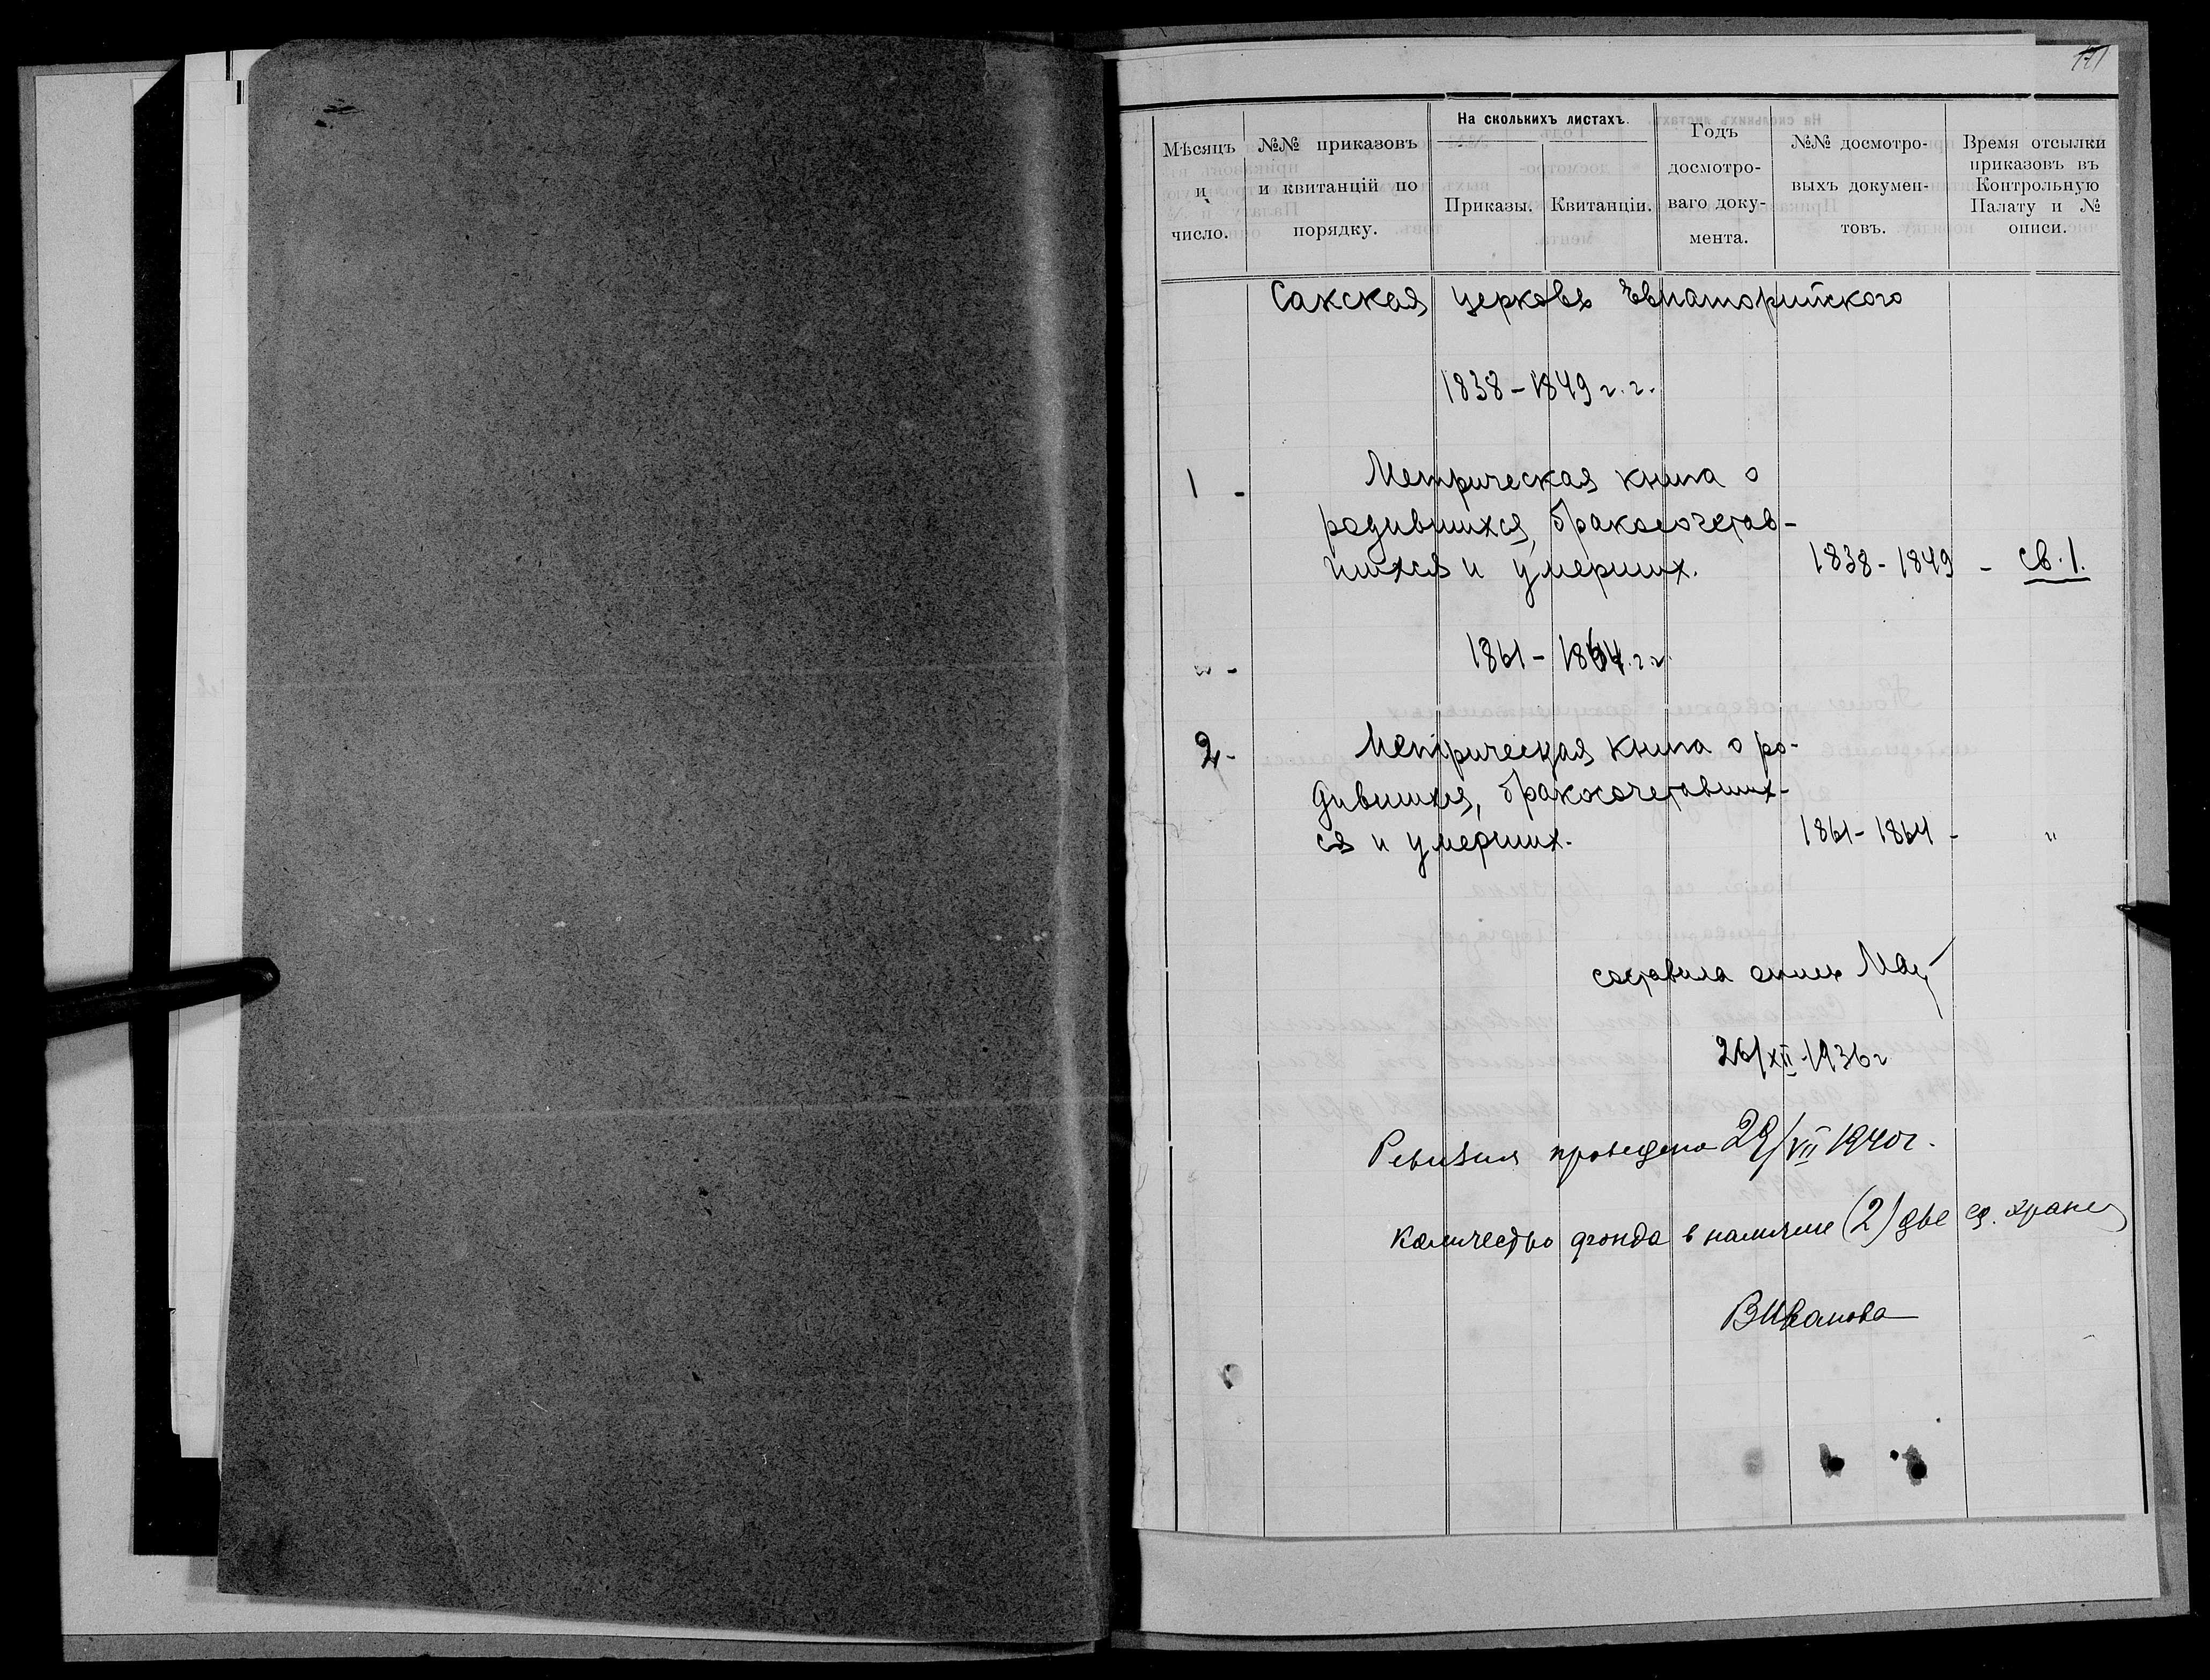 На сколькихъ листахъ.
Мѣсяцъ и число.
№№ приказовъ и квитанцій по порядку.
Приказы.
Квитанціи.
Годъ досмотро-ваго доку-мента.
№№ досмотро-выхъ докумен-товъ.
Время отсылки приказовъ въ Контрольную Палату и № описи.
Сакская церковь Евпаторийского
1838-1849 г.г.
1 - Метрическая книга о
родившихся, бракосочетав-
шихся и умерших. 1838-1849 - св. 1.
1861-1864 г.г.
2 - Метрическая книга о ро-
дившихся, бракосочетавших-
ся и умерших. 1861-1864 - "
составила опись
26/XII-1936г
Ревизия проведена 29/VII 1940г.
Количество фонда в наличие (2) две ед. хранен
ВИванова